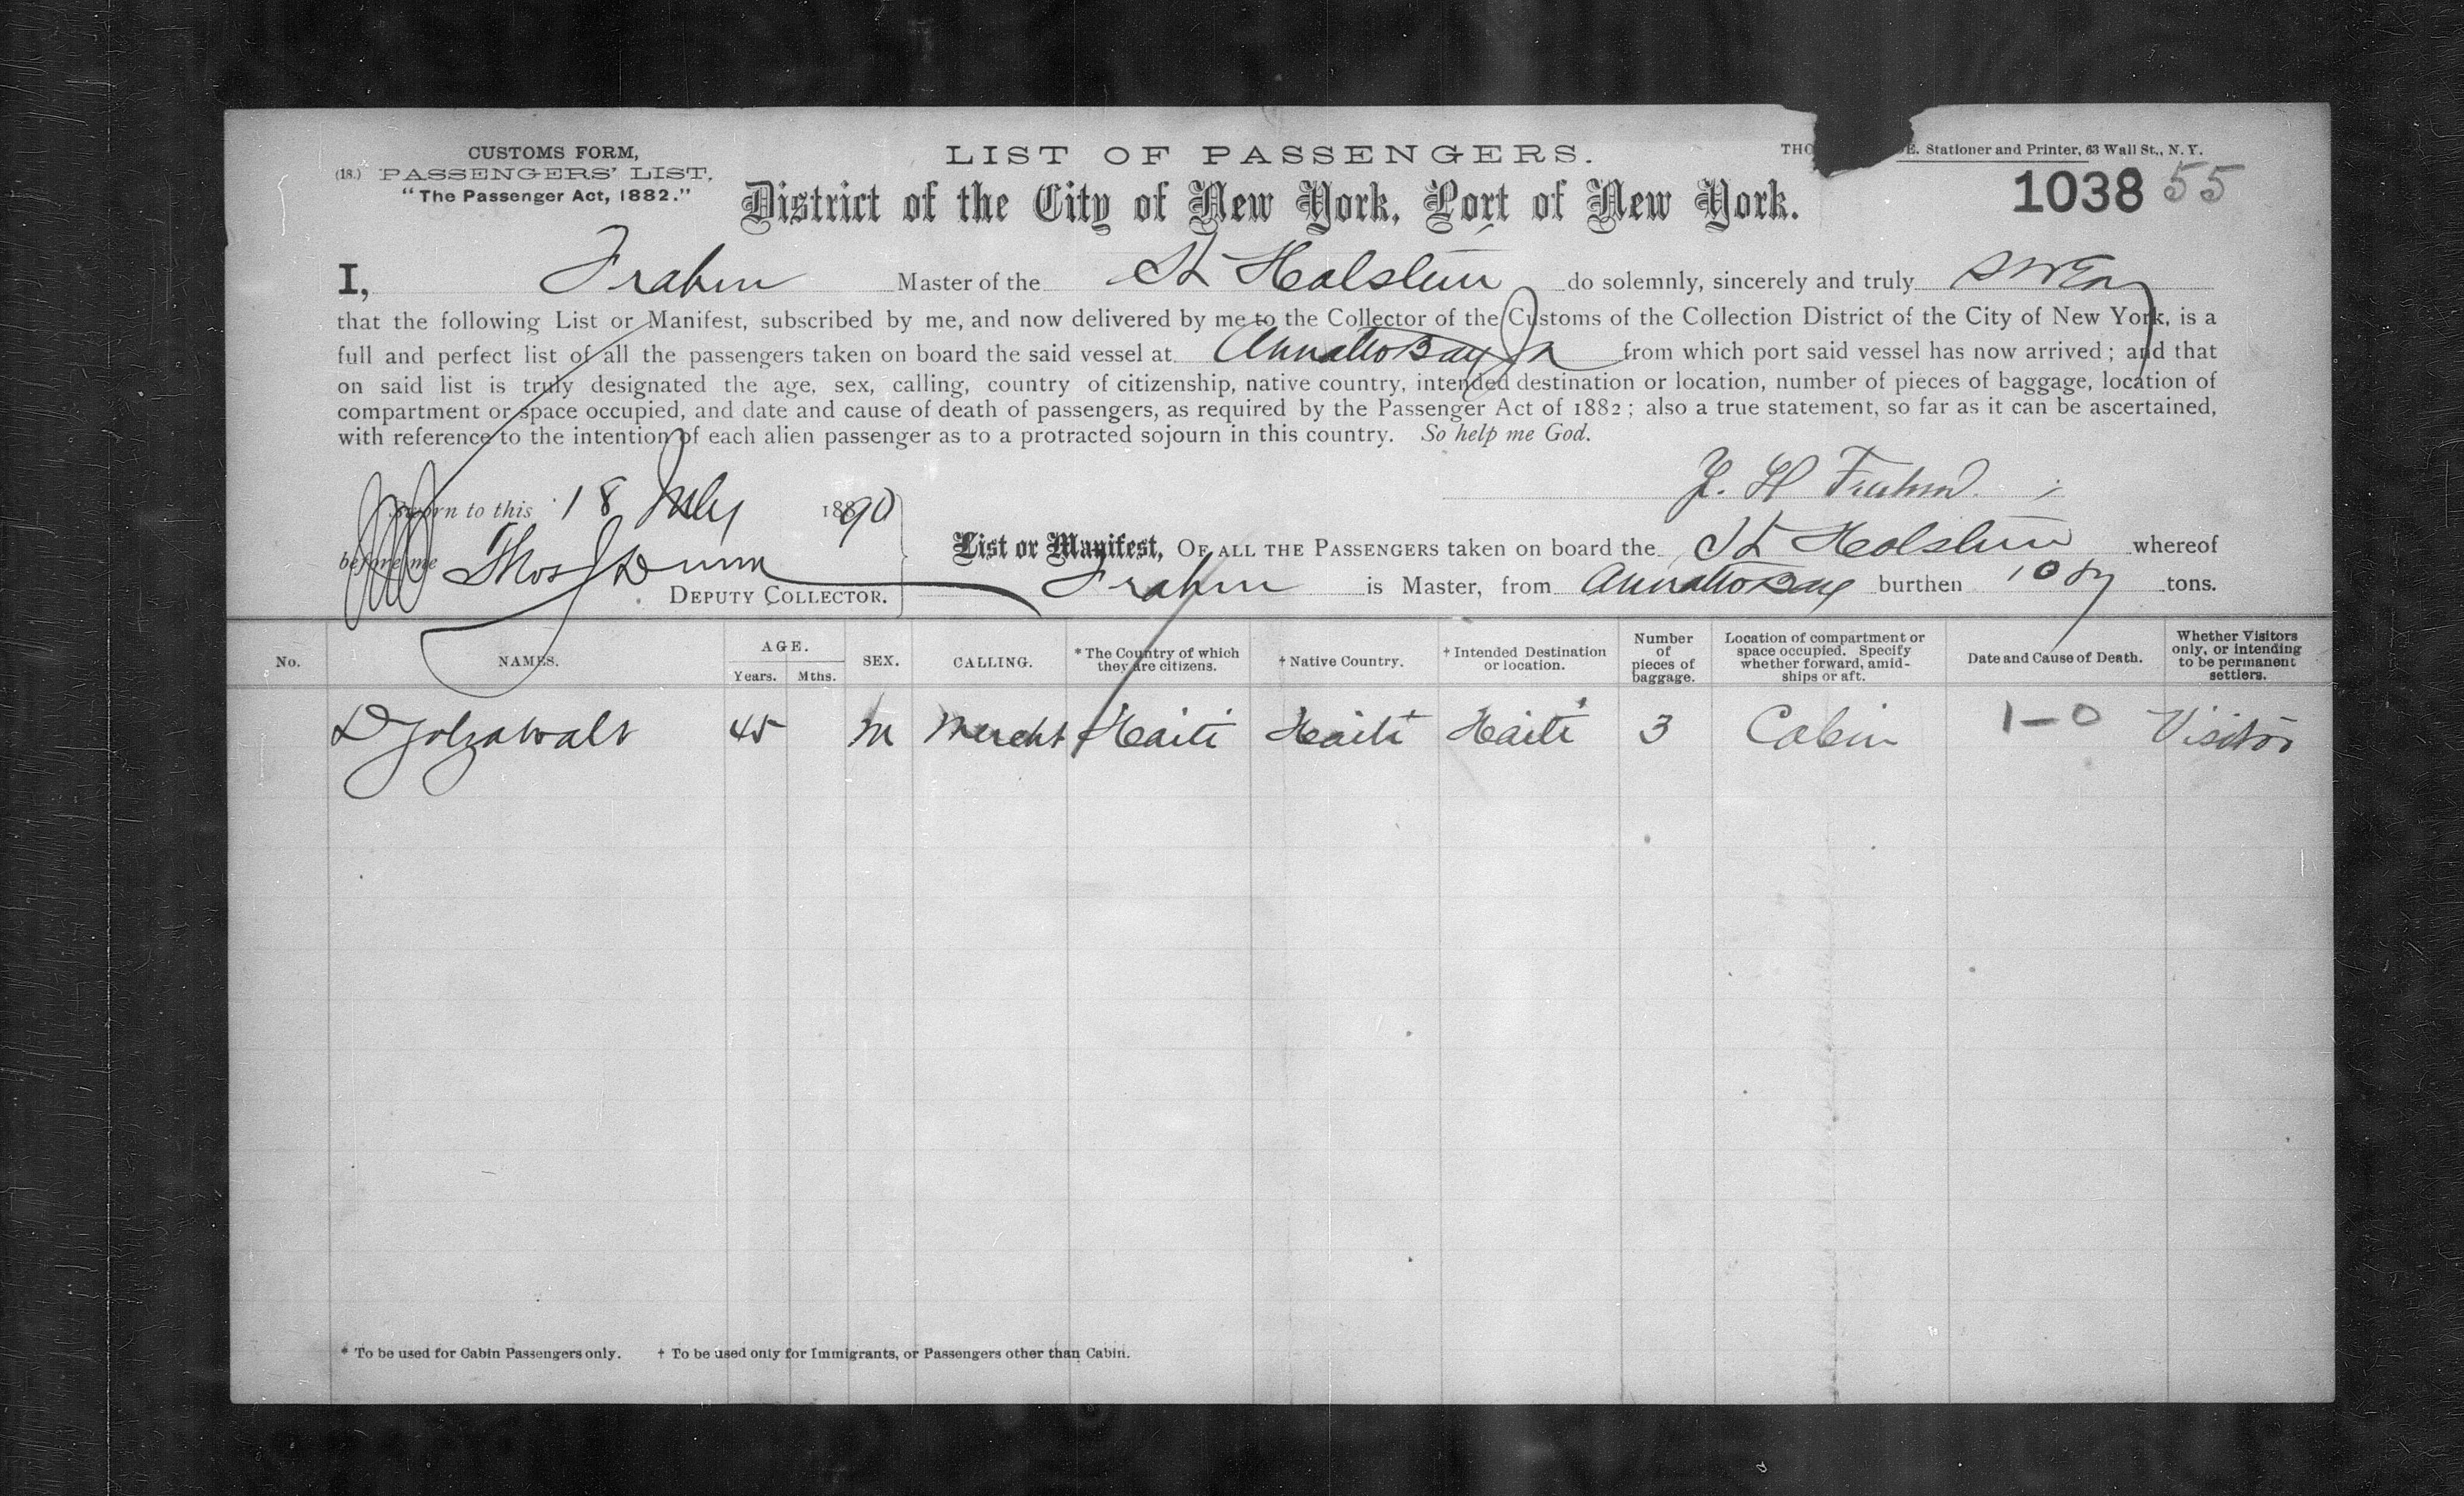 CUSTOMS FORM,
(18.) PASSENGERS' LIST,
"The Passenger Act, 1882."
LIST OF PASSENGERS.
THO E. Stationer and Printer, 63 Wall St., N. Y.
District of the City of New York, Port of New York.
1038 55
I, Frahm Master of the St Holstein do solemnly, sincerely and truly swear
that the following List or Manifest, subscribed by me, and now delivered by me to the Collector of the Customs of the Collection District of the City of New York, is a
full and perfect list of all the passengers taken on board the said vessel at Annatto Bay Ja from which port said vessel has now arrived; and that
on said list is truly designated the age, sex, calling, country of citizenship, native country, intended destination or location, number of pieces of baggage, location of
compartment or space occupied, and date and cause of death of passengers, as required by the Passenger Act of 1882; also a true statement, so far as it can be ascertained,
with reference to the intention of each alien passenger as to a protracted sojourn in this country. So help me God.
H Frahm
Sworn to this 18 July 1890
before me Thos J Dunn
DEPUTY COLLECTOR.
List or Manifest, OF ALL THE PASSENGERS taken on board the St Holstein whereof
Frahm is Master, from Annatto Bay burthen tons.
No. NAMES. AGE. Years. Mths. SEX. CALLING. * The Country of which they are citizens. † Native Country. † Intended Destination or location. Number of pieces of baggage. Location of compartment or space occupied. Specify whether forward, amidships or aft. Date and Cause of Death. Whether Visitors only, or intending to be permanent settlers.
45 M Mercht Haiti Haiti Haiti 3 Cabin 1-0 Visitor
* To be used for Cabin Passengers only. † To be used only for Immigrants, or Passengers other than Cabin.